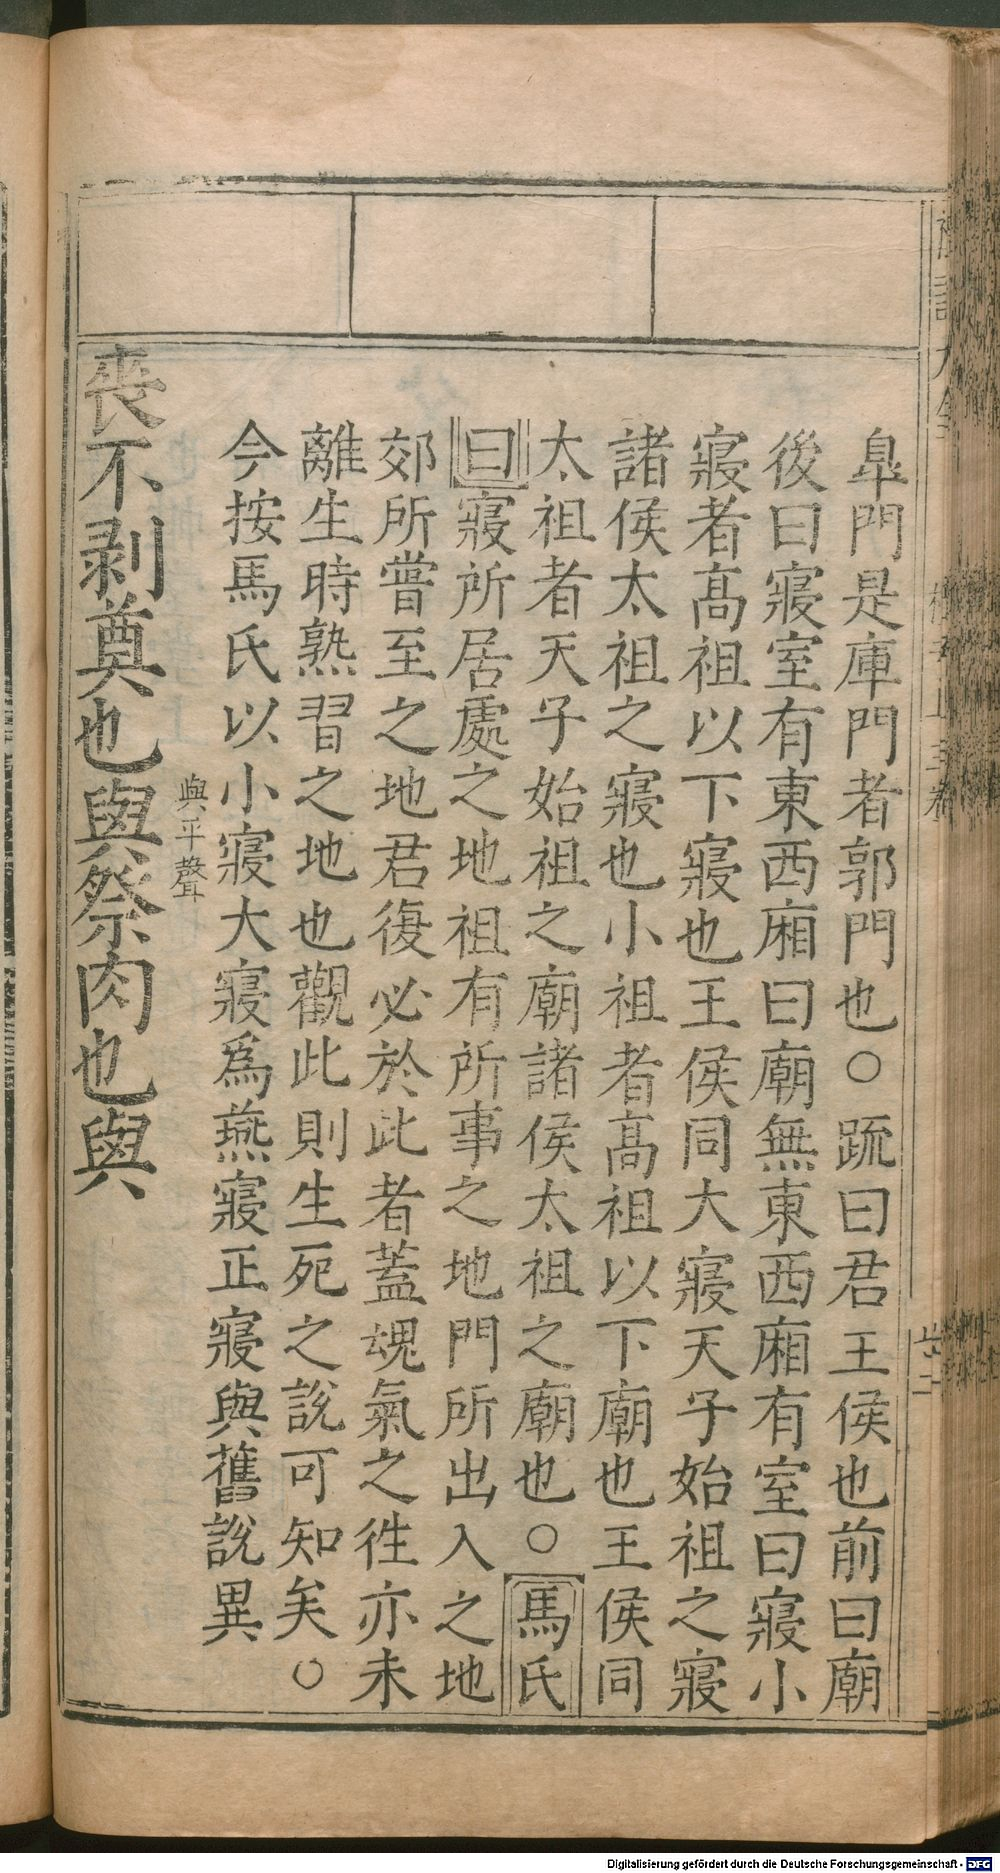 皐門是庫門者郭門也○䟽曰君王侯也前曰廟
後曰寢室有東西廂曰廟無東西廂有室曰寢小
寢者高祖以下寢也王侯同大寢天子始祖之寢
諸侯太祖之寢也小祖者高祖以下廟也王侯同
太祖者天子始祖之廟諸侯太祖之廟也○馬氏
曰寢所居處之地祖有所事之地門所出入之地
郊所嘗至之地君復必於此者蓋魂氣之徃亦未
離生時熟習之地也觀此則生死之說可知矣○
今按馬氏以小寢大寢爲燕寢正寢與舊說異
與平聲
喪不剥奠也與祭肉也與
Digitalisierung gefördert durch die Deutsche Forschungsgemeinschaft - DFG